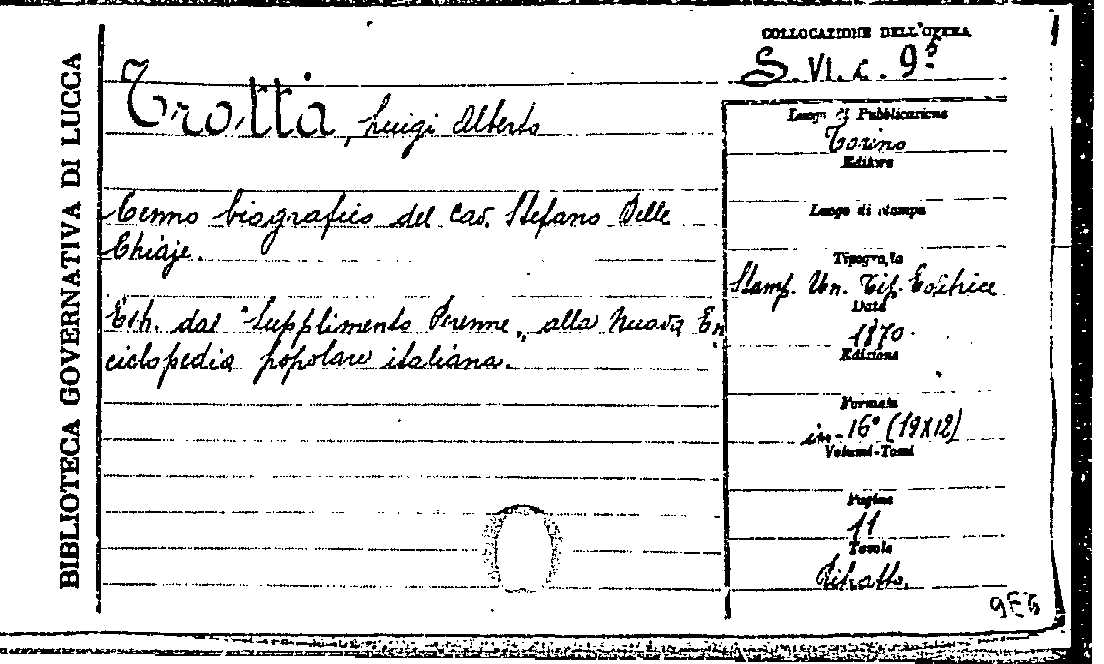 BIBLIOTECA GOVERNATIVA DI LUCCA
COLLOCAZIONE DELL'OPERA
S. VI. c. 9⁵
Trotta, Luigi Alberto
Cenno biografico del Cav. Stefano Delle
Chiaje.
Estr. dal "Supplimento Perenne" alla Nuova En
ciclopedia popolare italiana.
Luogo di Pubblicazione
Torino
Editore
Luogo di stampa
Tipografo
Stamp. Un. Tip. Editrice
Data
1870.
Edizione
Formato
in-16° (19X12)
Volumi-Tomi
Pagine
11
Tavole
Ritratto.